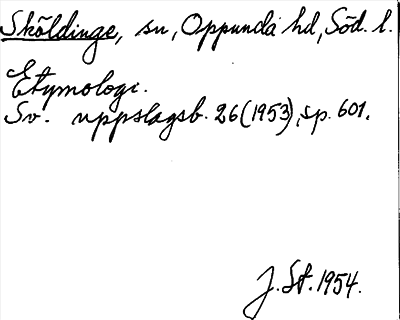 Sköldinge, sn, Oppunda hd, Söd. l.
Etymologi.
Sv. uppslagsb. 26 (1953), sp. 601.
J. St. 1954.